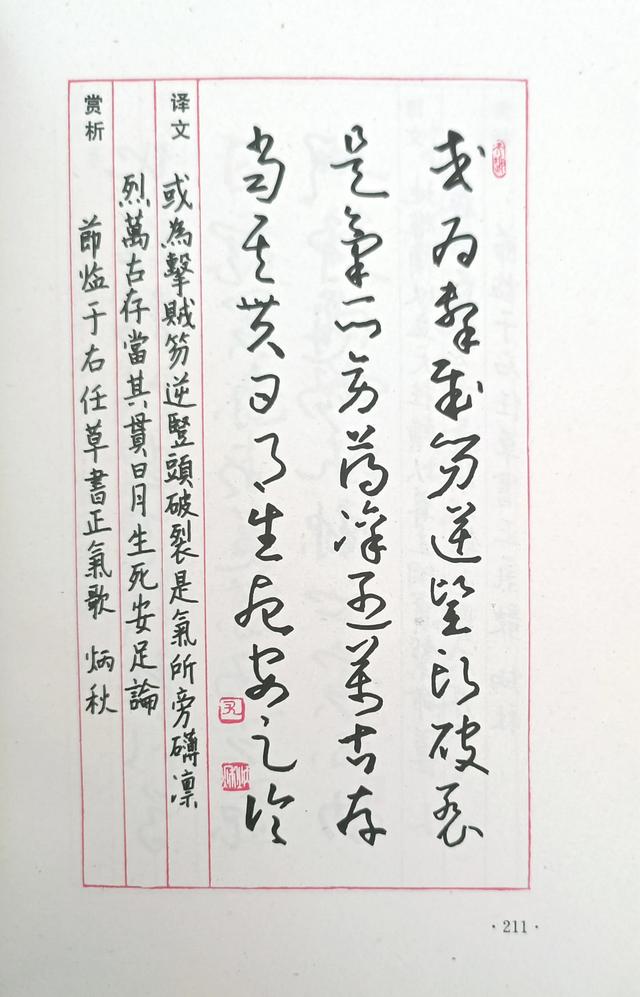 或为擊賊笏逆豎頭破裂
是氣所旁礴凜烈萬古存
當其貫日月生死安足論
译文
或為擊賊笏逆豎頭破裂是氣所旁礴凛
烈萬古存當其貫日月生死安足論
赏析
節临于右任草書正氣歌 炳秋
·211·